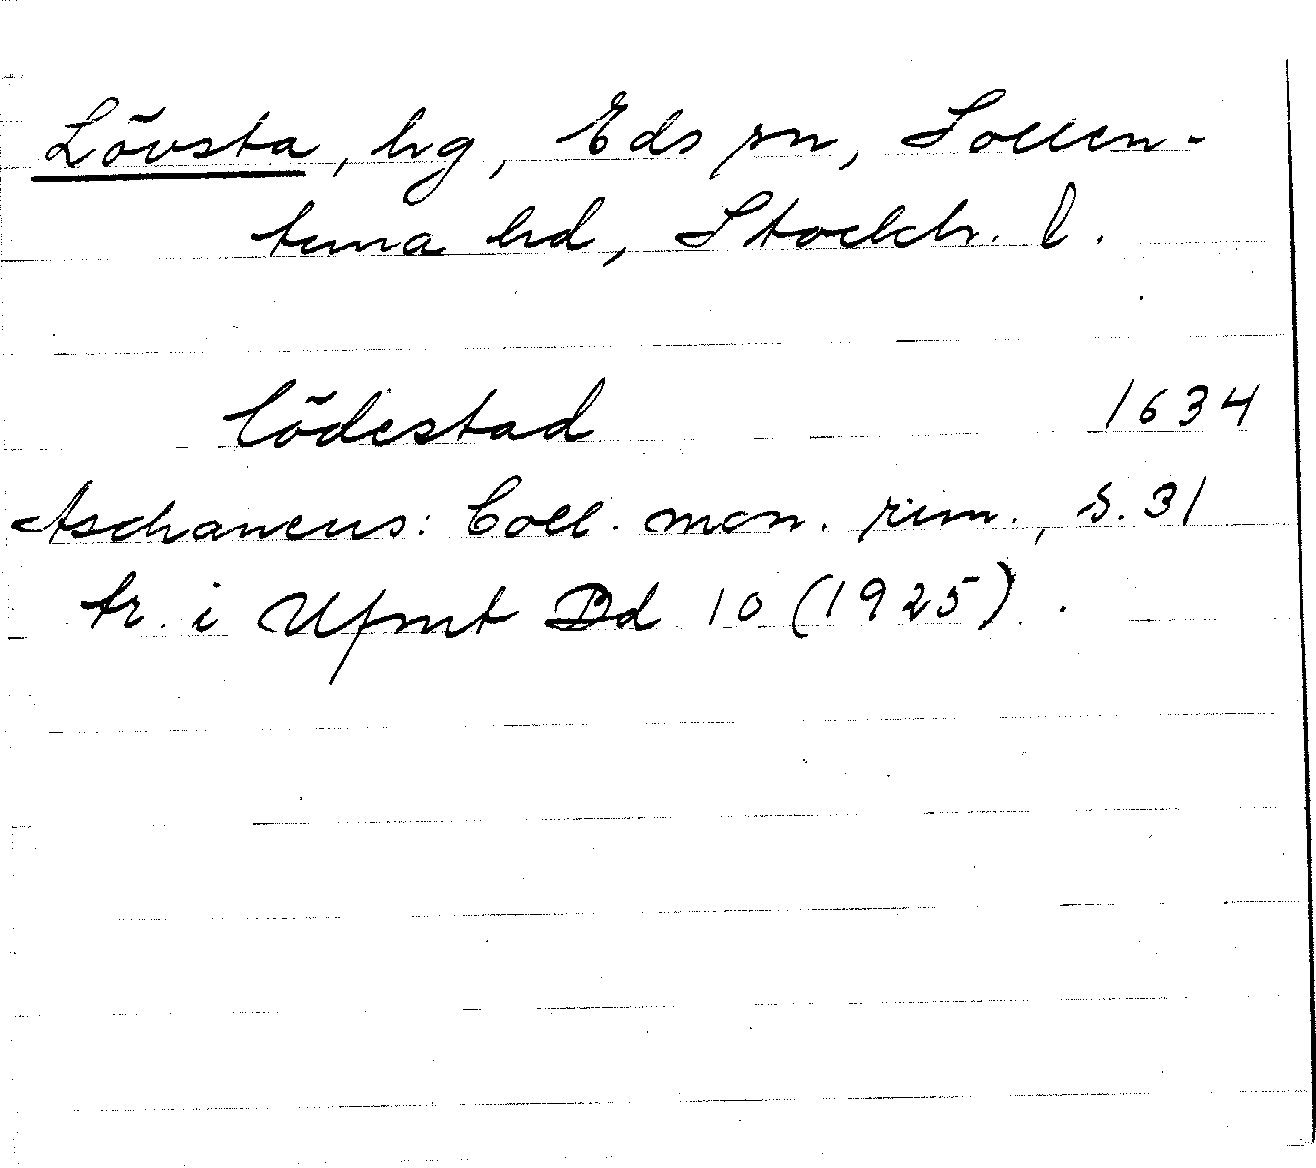 Lövsta, hg, Eds sn, Sollen-
tuna hd, Stockh. l.
Lödestad 1634
Aschaneus: Coll. mon. run., s. 31
tr. i Ufmt Bd 10 (1925).